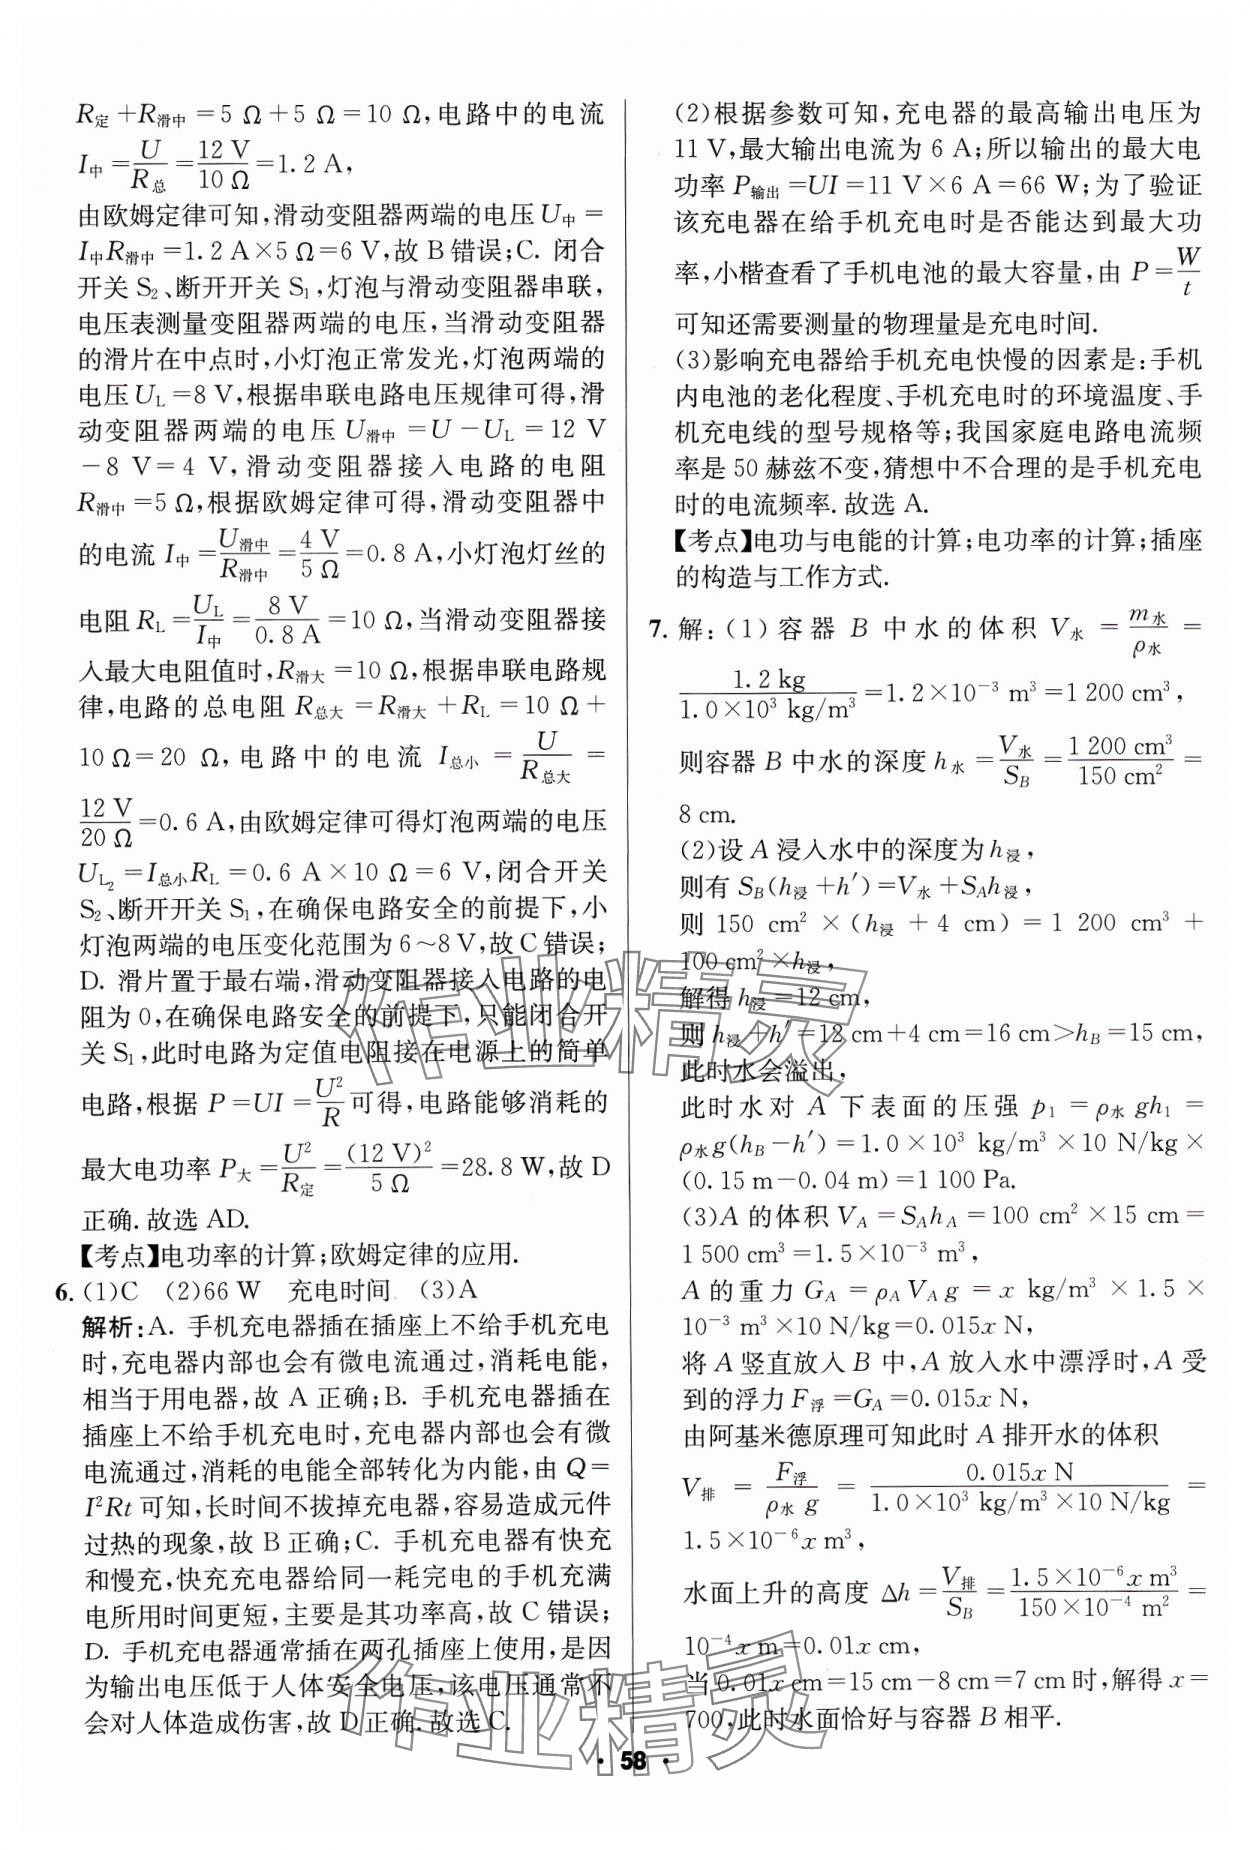 R定+R滑中=5 Ω+5 Ω=10 Ω,电路中的电流
I中=U/R总=12 V/10 Ω=1.2 A,
由欧姆定律可知,滑动变阻器两端的电压U中=
I中R滑中=1.2 A×5 Ω=6 V,故 B 错误;C. 闭合
开关 S₂、断开开关 S₁,灯泡与滑动变阻器串联,
电压表测量变阻器两端的电压,当滑动变阻器
的滑片在中点时,小灯泡正常发光,灯泡两端的
电压U_L=8 V,根据串联电路电压规律可得,滑
动变阻器两端的电压U滑中=U-U_L=12 V
-8 V=4 V,滑动变阻器接入电路的电阻
R滑中=5 Ω,根据欧姆定律可得,滑动变阻器中
的电流 I中=U滑中/R滑中=4 V/5 Ω=0.8 A,小灯泡灯丝的
电阻 R_L=U_L/I中=8 V/0.8 A=10 Ω,当滑动变阻器接
入最大电阻值时,R滑大=10 Ω,根据串联电路规
律,电路的总电阻 R总大=R滑大+R_L=10 Ω+
10 Ω=20 Ω,电路中的电流 I总小=U/R总大=
12 V/20 Ω=0.6 A,由欧姆定律可得灯泡两端的电压
U_L₂=I总小R_L=0.6 A×10 Ω=6 V,闭合开关
S₂、断开开关 S₁,在确保电路安全的前提下,小
灯泡两端的电压变化范围为 6~8 V,故 C 错误;
D. 滑片置于最右端,滑动变阻器接入电路的电
阻为 0,在确保电路安全的前提下,只能闭合开
关 S₁,此时电路为定值电阻接在电源上的简单
电路,根据 P=UI=U²/R可得,电路能够消耗的
最大电功率 P大=U²/R定=(12 V)²/5 Ω=28.8 W,故 D
正确.故选 AD.
【考点】电功率的计算;欧姆定律的应用.
6. (1)C (2)66 W 充电时间 (3)A
解析:A. 手机充电器插在插座上不给手机充电
时,充电器内部也会有微电流通过,消耗电能,
相当于用电器,故 A 正确;B. 手机充电器插在
插座上不给手机充电时,充电器内部也会有微
电流通过,消耗的电能全部转化为内能,由 Q=
I²Rt 可知,长时间不拔掉充电器,容易造成元件
过热的现象,故 B 正确;C. 手机充电器有快充
和慢充,快充充电器给同一耗完电的手机充满
电所用时间更短,主要是其功率高,故 C 错误;
D. 手机充电器通常插在两孔插座上使用,是因
为输出电压低于人体安全电压,该电压通常不
会对人体造成伤害,故 D 正确.故选 C.
(2)根据参数可知,充电器的最高输出电压为
11 V,最大输出电流为 6 A;所以输出的最大电
功率 P输出=UI=11 V×6 A=66 W;为了验证
该充电器在给手机充电时是否能达到最大功
率,小楷查看了手机电池的最大容量,由 P=W/t
可知还需要测量的物理量是充电时间.
(3)影响充电器给手机充电快慢的因素是:手机
内电池的老化程度、手机充电时的环境温度、手
机充电线的型号规格等;我国家庭电路电流频
率是 50 赫兹不变,猜想中不合理的是手机充电
时的电流频率.故选 A.
【考点】电功与电能的计算;电功率的计算;插座
的构造与工作方式.
7. 解:(1)容器 B 中水的体积 V水=m水/ρ水=
1.2 kg/1.0×10³ kg/m³=1.2×10⁻³ m³=1 200 cm³,
则容器 B 中水的深度 h水=V水/S_B=1 200 cm³/150 cm²=
8 cm.
(2)设 A 浸入水中的深度为 h浸,
则有 S_B(h浸+h′)=V水+S_Ah浸,
则 150 cm²×(h浸+4 cm)=1 200 cm³+
100 cm²×h浸,
解得 h浸=12 cm,
则 h浸+h′=12 cm+4 cm=16 cm>h_B=15 cm,
此时水会溢出,
此时水对 A 下表面的压强 p₁=ρ水gh₁=
ρ水g(h_B-h′)=1.0×10³ kg/m³×10 N/kg×
(0.15 m-0.04 m)=1 100 Pa.
(3)A 的体积 V_A=S_Ah_A=100 cm²×15 cm=
1 500 cm³=1.5×10⁻³ m³,
A 的重力 G_A=ρ_AV_Ag=x kg/m³×1.5×
10⁻³ m³×10 N/kg=0.015x N,
将 A 竖直放入 B 中,A 放入水中漂浮时,A 受
到的浮力 F浮=G_A=0.015x N,
由阿基米德原理可知此时 A 排开水的体积
V排=F浮/ρ水g=0.015x N/1.0×10³ kg/m³×10 N/kg=
1.5×10⁻⁶x m³,
水面上升的高度 Δh=V排/S_B=1.5×10⁻⁶x m³/150×10⁻⁴ m²=
10⁻⁴x m=0.01x cm,
当 0.01x cm=15 cm-8 cm=7 cm 时,解得 x=
700,此时水面恰好与容器 B 相平.
作业精灵
作业精灵
· 58 ·